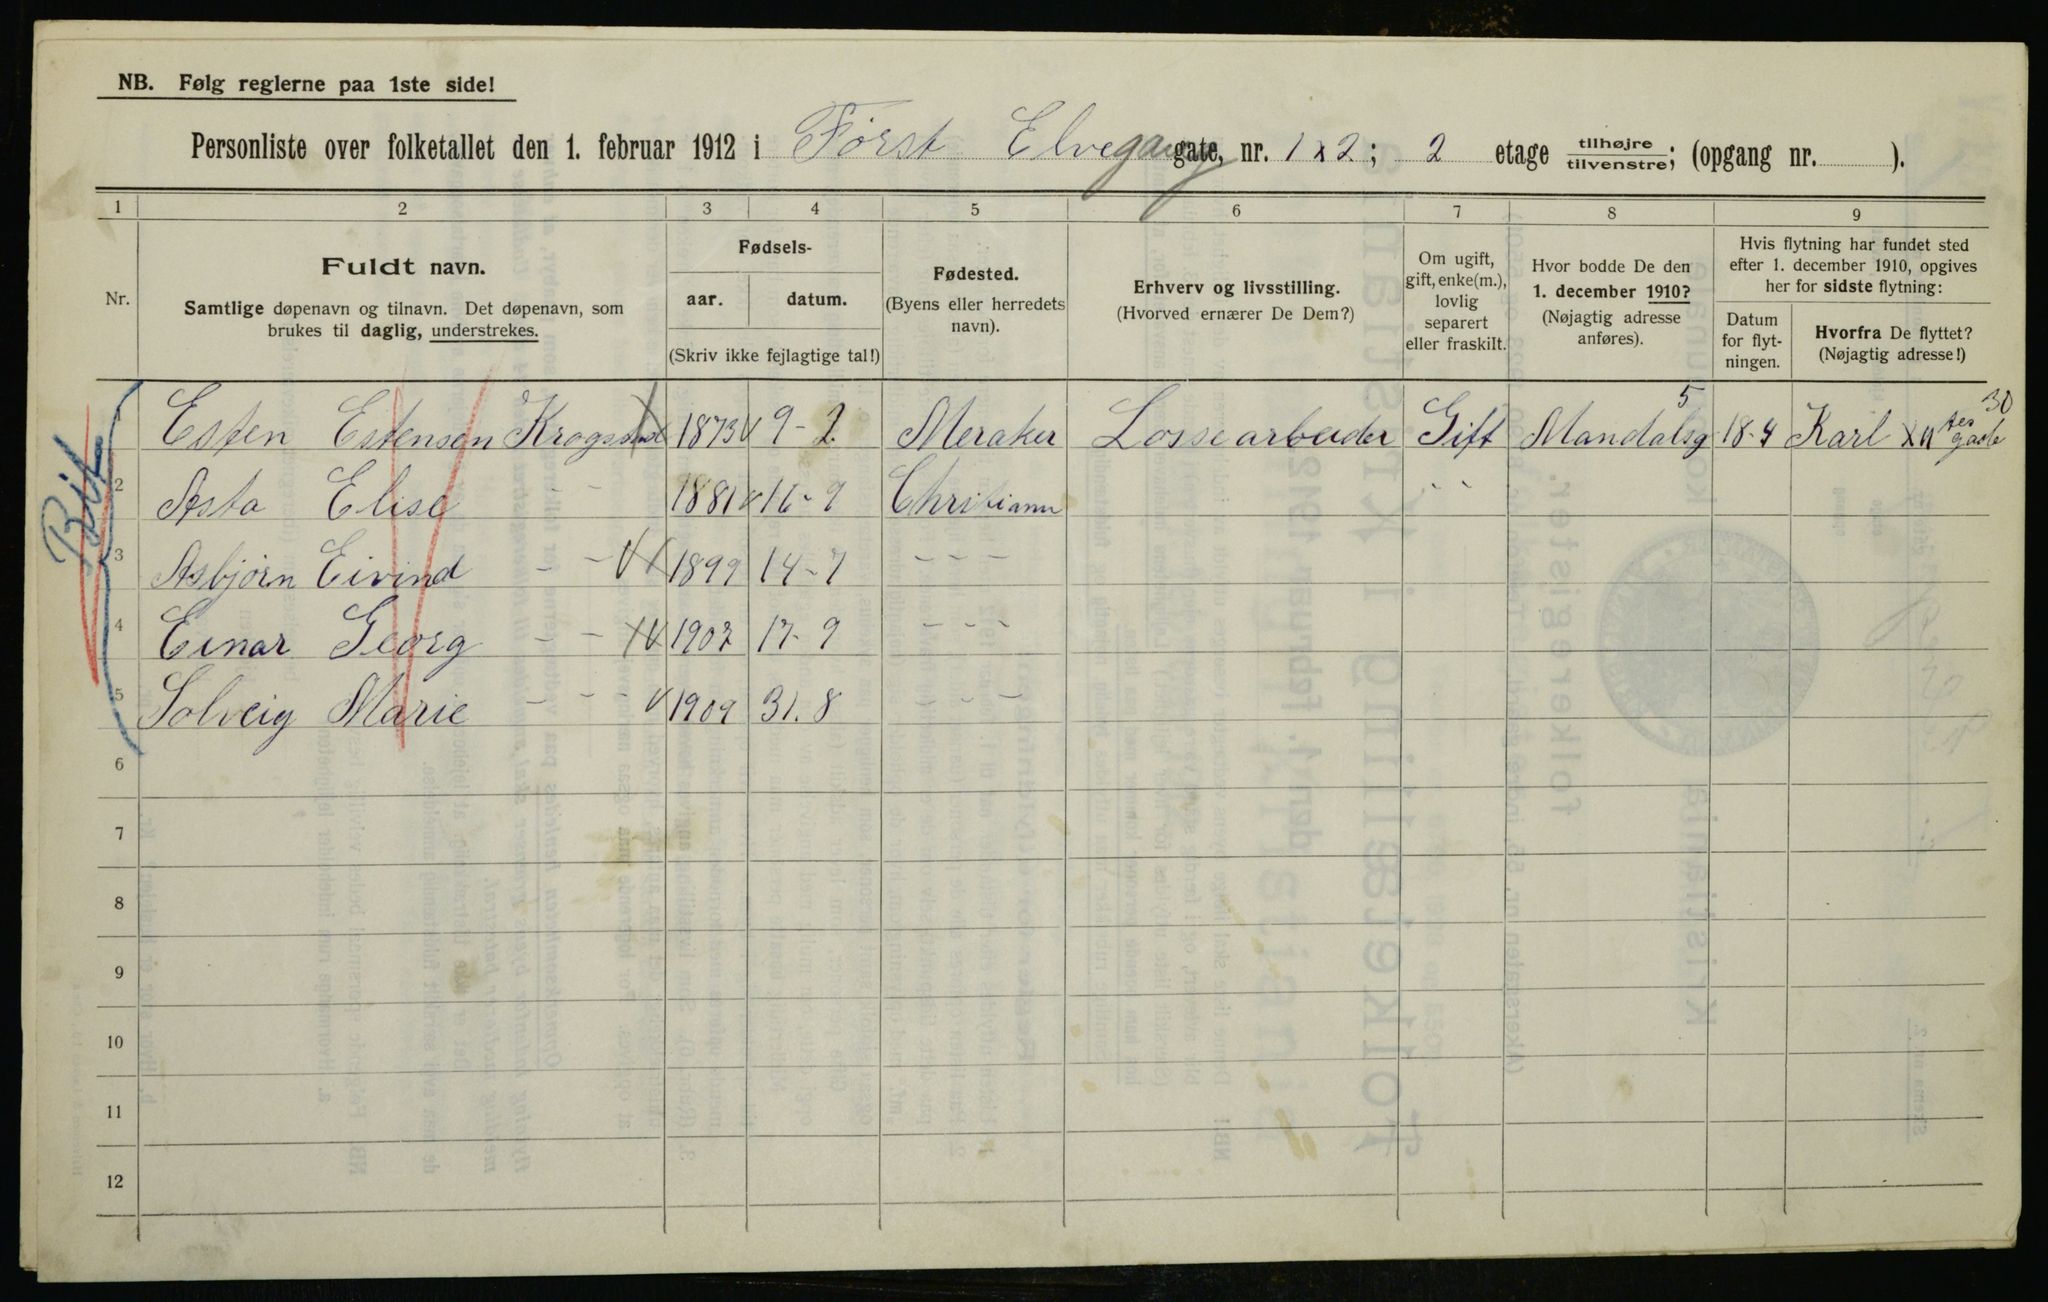 NB. Følg reglerne paa 1ste side!
Personliste over folketallet den 1. februar 1912 i Først Elvegang gate, nr. 1 x 2; 2 etage tilhøjre tilvenstre; (opgang nr. ).
1 2 3 4 5 6 7 8 9
Nr.
Fuldt navn.
Samtlige døpenavn og tilnavn. Det døpenavn, som
brukes til daglig, understrekes.
Fødsels-
aar. datum.
(Skriv ikke fejlagtige tal!)
Fødested.
(Byens eller herredets
navn).
Erhverv og livsstilling.
(Hvorved ernærer De Dem?)
Om ugift,
gift, enke(m.),
lovlig
separert
eller fraskilt.
Hvor bodde De den
1. december 1910?
(Nøjagtig adresse
anføres).
Hvis flytning har fundet sted
efter 1. december 1910, opgives
her for sidste flytning:
Datum
for flyt-
ningen.
Hvorfra De flyttet?
(Nøjagtig adresse!)
1 Esten Estensen 1873 9-2 Meraker Lossearbeider Gift Mandalsg 5 18-4 Karl XII tes gade 30
2 Asta Elise - - 1881 16-9 Christiania " "
3 Asbjørn Eivind - - 1899 14-7 - - -
4 Einar Georg - - 1902 17-9 - - -
5 Solveig Marie - - - 1909 31.8 - - -
6
7
8
9
10
11
12